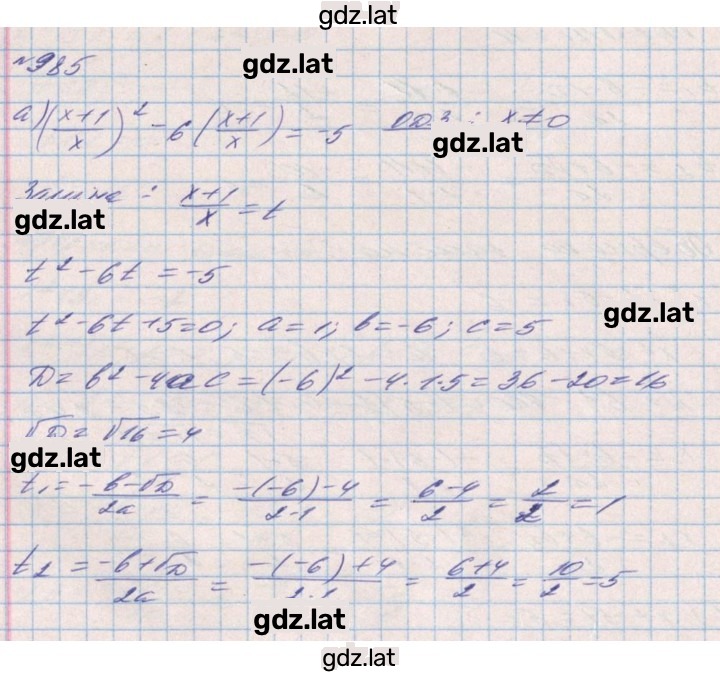 gdz.lat
№985 gdz.lat
а) ((x+1)/x)² - 6 ((x+1)/x) = -5 ОДЗ: x≠0
gdz.lat
Заміна: (x+1)/x = t
gdz.lat
t² - 6t = -5
gdz.lat
t² - 6t + 5 = 0; a = 1; b = -6; c = 5
D = b² - 4ac = (-6)² - 4·1·5 = 36 - 20 = 16
√D = √16 = 4
gdz.lat
t₁ = (-b-√D)/2a = (-(-6)-4)/2·1 = (6-4)/2 = 2/2 = 1
t₂ = (-b+√D)/2a = (-(-6)+4)/2·1 = (6+4)/2 = 10/2 = 5
gdz.lat
gdz.lat